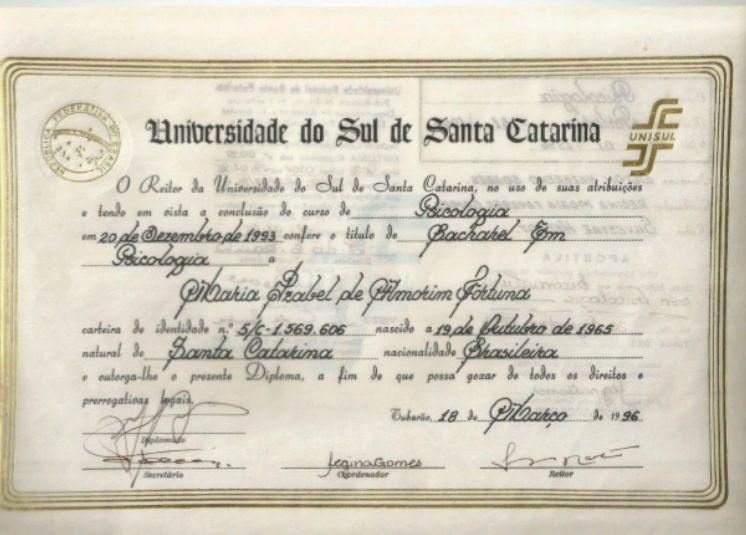 REPÚBLICA FEDERATIVA DO BRASIL
Universidade do Sul de Santa Catarina
UNISUL
O Reitor da Universidade do Sul de Santa Catarina, no uso de suas atribuições
e tendo em vista a conclusão do curso de Psicologia
em 20 de Dezembro de 1993 confere o título de Bacharel Em
Psicologia a
Maria Izabel de Amorim Fortuna
carteira de identidade n.º 5/C-1.569.606 nascido a 19 de Outubro de 1965
natural de Santa Catarina nacionalidade Brasileira
e outorga-lhe o presente Diploma, a fim de que possa gozar de todos os direitos e
prerrogativas legais.
Tubarão, 18 de Março de 1996
Diplomado
ReginaGomes
Secretário Coordenador Reitor